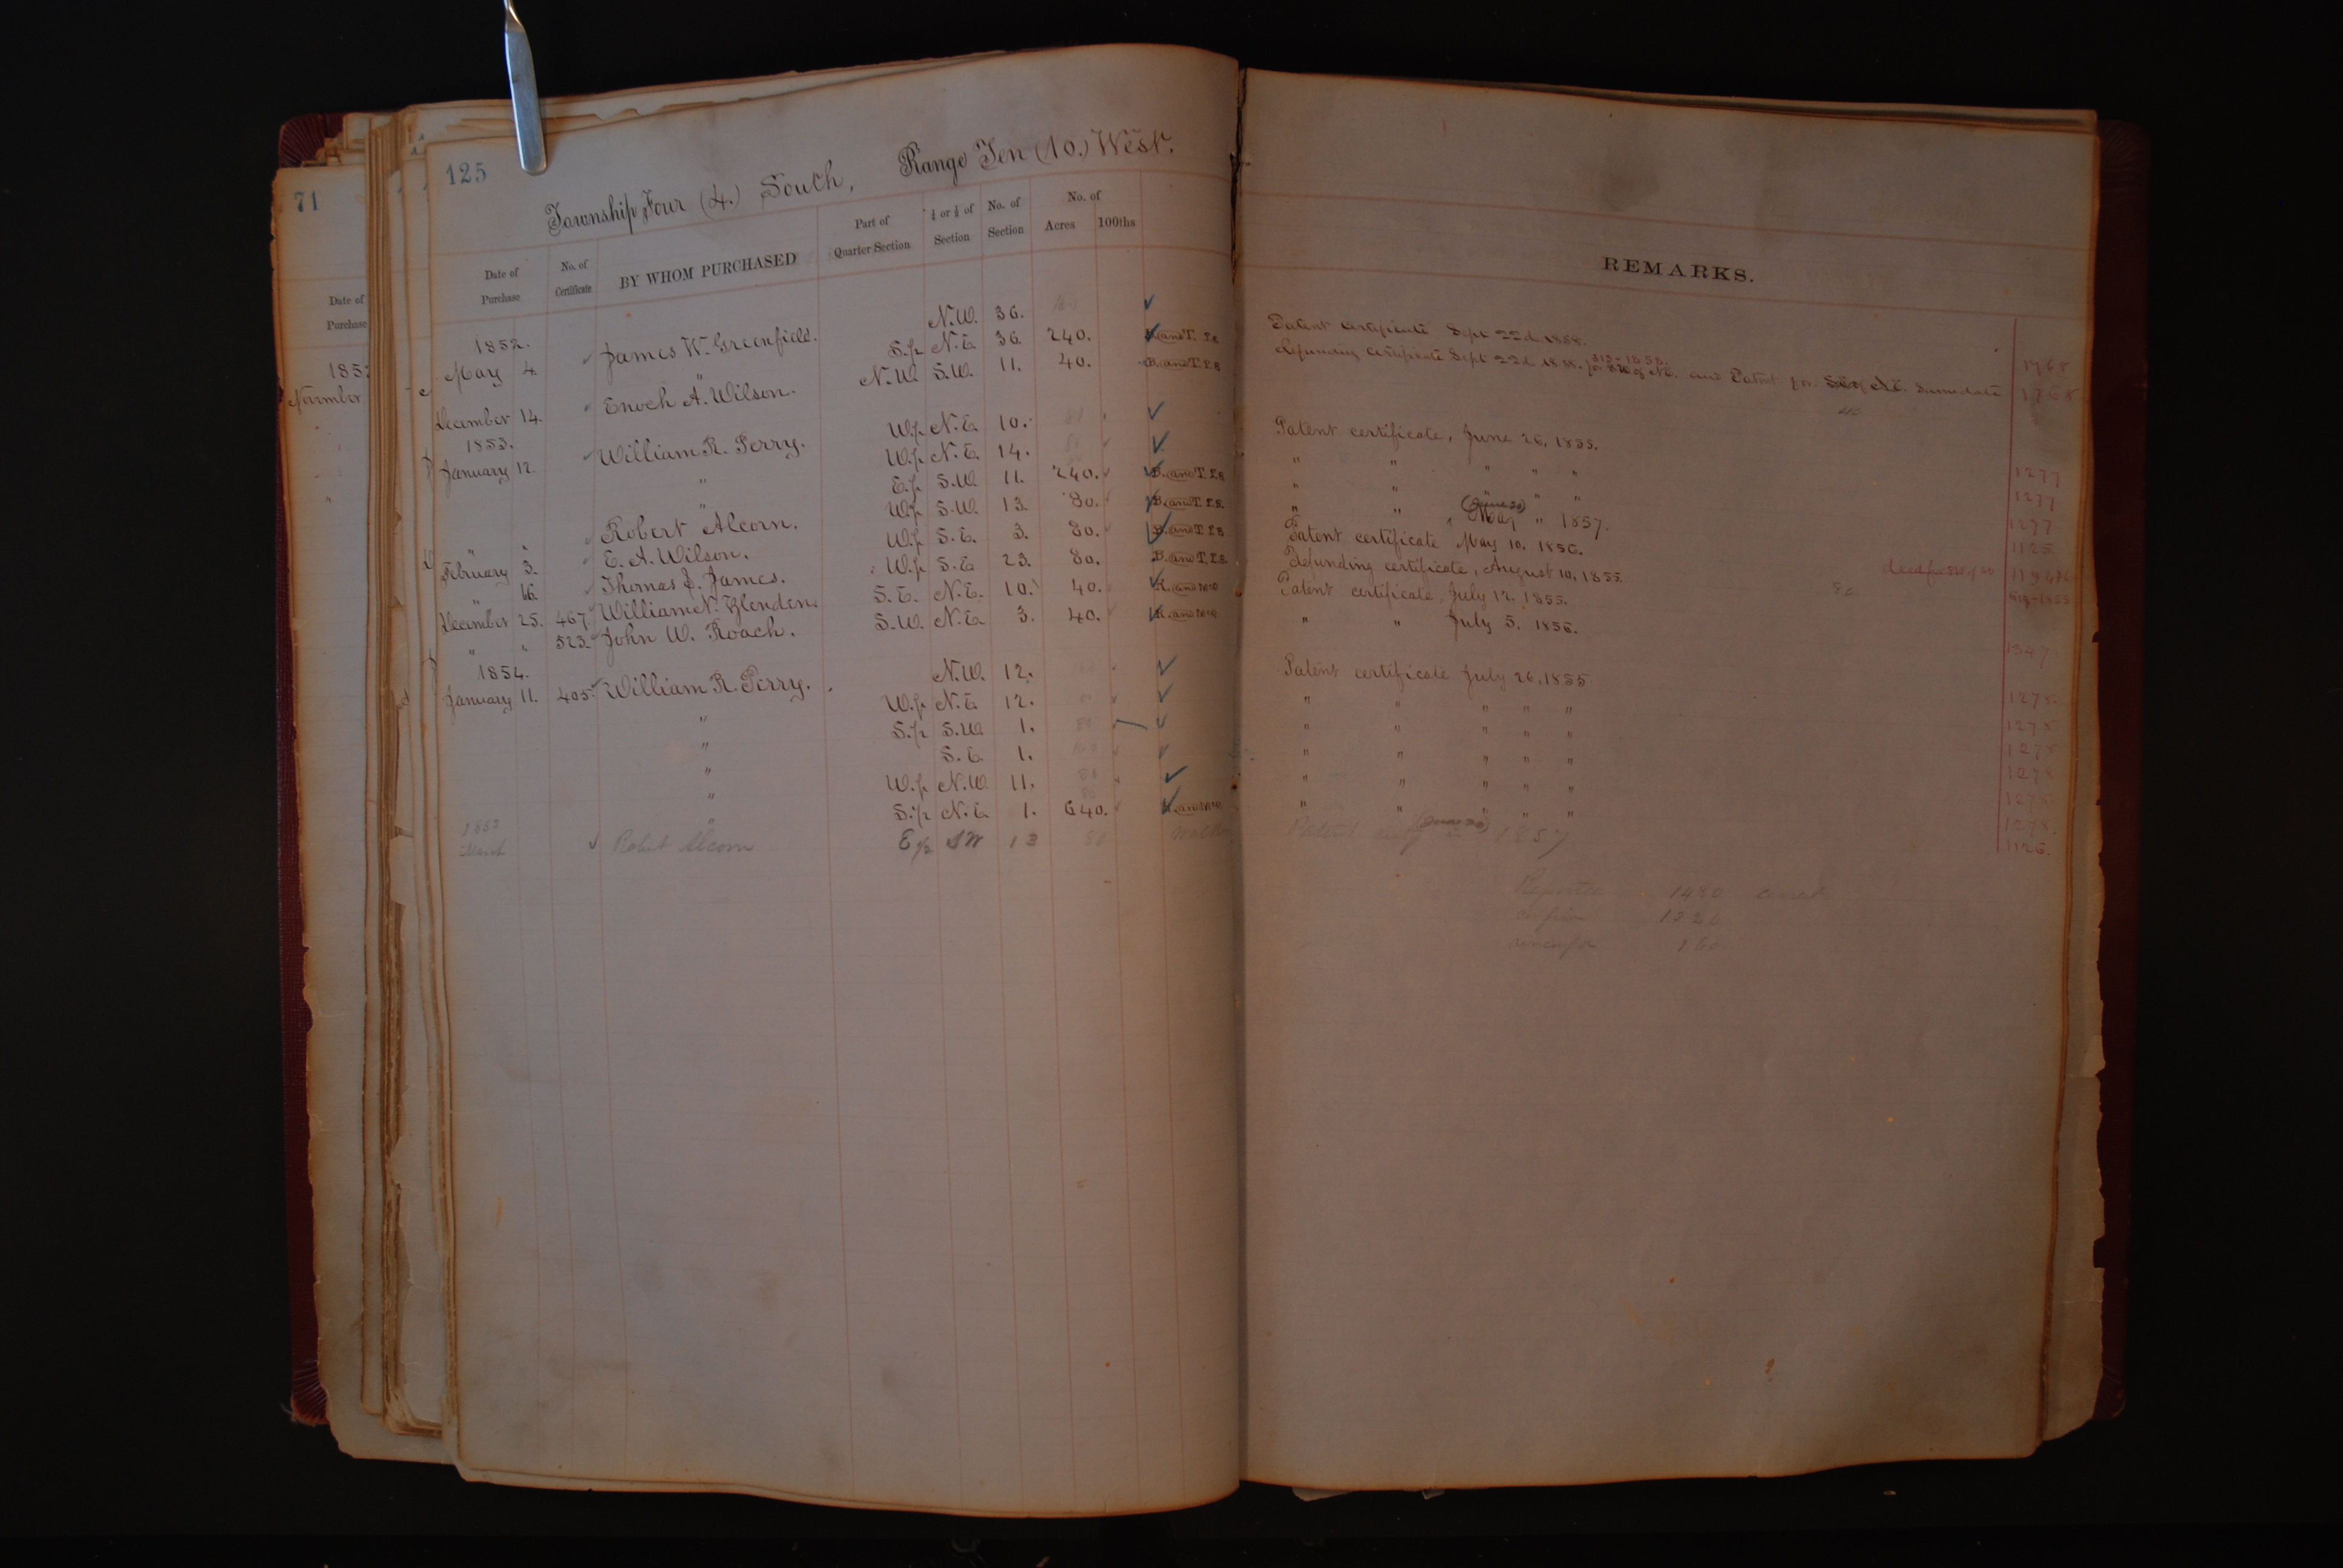 71
Date of
Purchase
November
125
Township Four (4.) South, Range Ten (10.) West.
Date of Purchase No. of Certificate BY WHOM PURCHASED Part of Quarter Section ½ or ¼ of Section No. of Section No. of Acres 100ths
REMARKS.
1852.
May 4. James W. Greenfield. N.W. 36. Patent certificate Sept 22d 1858.
" S.½ N.E. 36. 240. Refunding certificate Sept 22d 1858. and Patent for same date
December 14. Enoch A. Wilson. N.W. S.W. 11. 40.
1853.
January 12. William R. Perry. W.½ N.E. 10. 80 Patent certificate, June 26, 1855. 1277
" W.½ N.E. 14. 80 " " " " " 1277
" E.½ S.W. 11. 240. B. and T. Ls. " " " " " 1277
" " Robert Alcorn. W.½ S.W. 13. 80. B. and T. Ls. " " May " 1857. (June 30) 1125
February 3. E. A. Wilson. W.½ S.E. 3. 80. B. and T. Ls. Patent certificate May 10. 1856.
" 16. Thomas J. James. W.½ S.E. 23. 80. B. and T. Ls. Refunding certificate, August 10, 1855.
December 25. 467. William N. Glenden. S.E. N.E. 10. 40. Patent certificate, July 12. 1855.
" " 523. John W. Roach. S.W. N.E. 3. 40. " " July 5. 1856. 1347
1854.
January 11. 405. William R. Perry. N.W. 12. Patent certificate July 26, 1855. 1275.
" W.½ N.E. 12. 80 " " " " " 1275
" S.½ S.W. 1. 80 " " " " " 1275
" S.E. 1. 160 " " " " " 1275
" W.½ N.W. 11. 80 " " " " " 1275
" S.½ N.E. 1. 640. " " " " " 1275.
1853 March Robert Alcorn E½ SW 13 80 Patent (June 30) 1857 1126.
Reported 1480
160